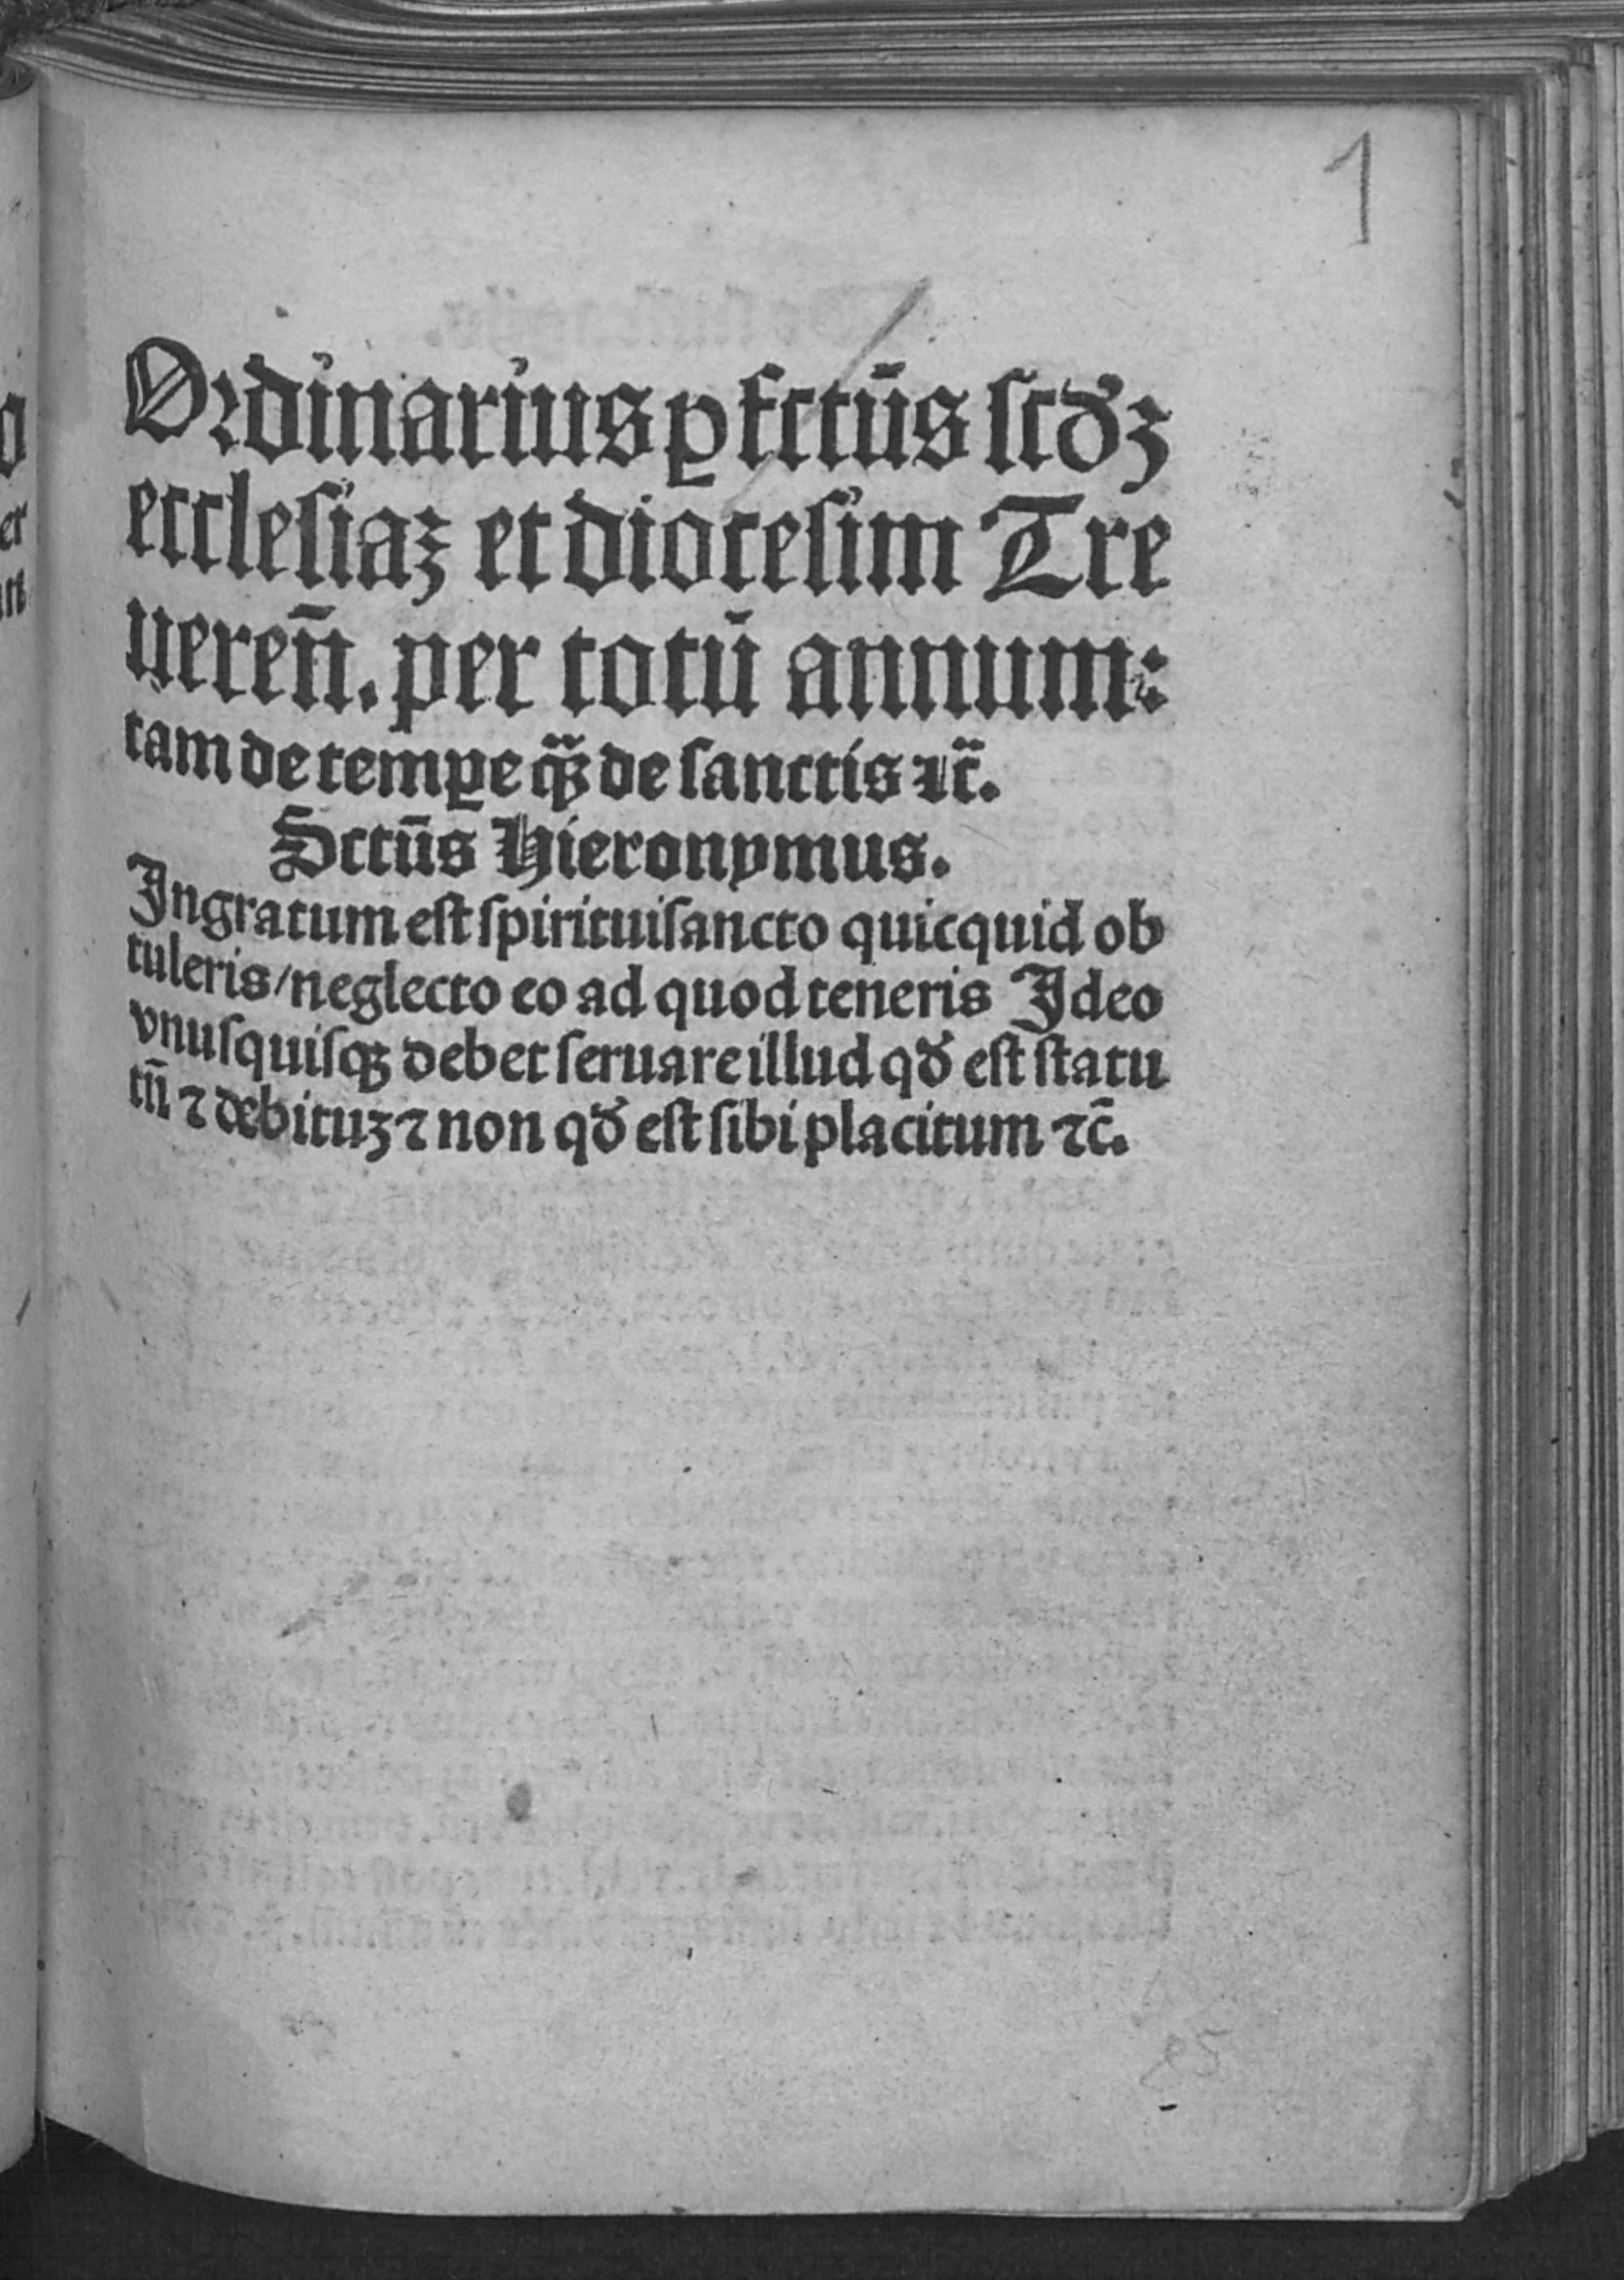 1
Ordinarius ꝑfctūs scdꝫ
ecclesiaꝫ et diocesim Tre
ueren̄. per totū annum:
tam de tempꝑe qꝫ̄ de sanctis ⁊c̄.
Sctūs Hieronymus.
Ingratum est spirituisancto quicquid ob
tuleris/neglecto eo ad quod teneris Ideo
vnusquisqꝫ debet seruare illud qđ est statu
tū ⁊ debituꝫ ⁊ non qđ est sibi placitum ⁊c̄.